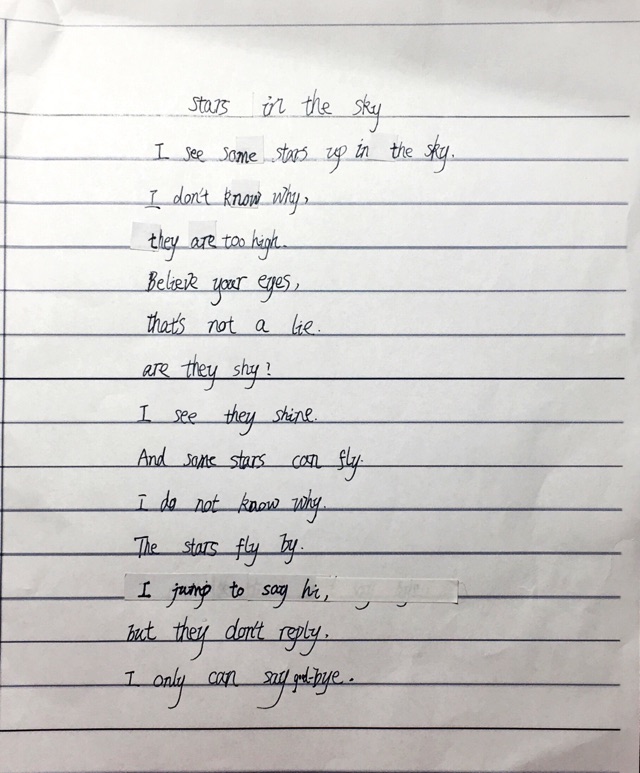 stars in the sky
I see some stars up in the sky.
I don't know why,
they are too high.
Believe your eyes,
that's not a lie.
are they shy?
I see they shine.
And some stars can fly.
I do not know why.
The stars fly by.
I jump to say hi,
but they don't reply.
I only can say good-bye.